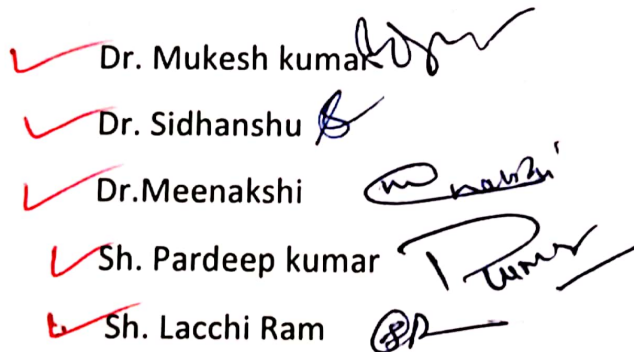 Dr. Mukesh kumar
Dr. Sidhanshu
Dr.Meenakshi
Sh. Pardeep kumar
Sh. Lacchi Ram